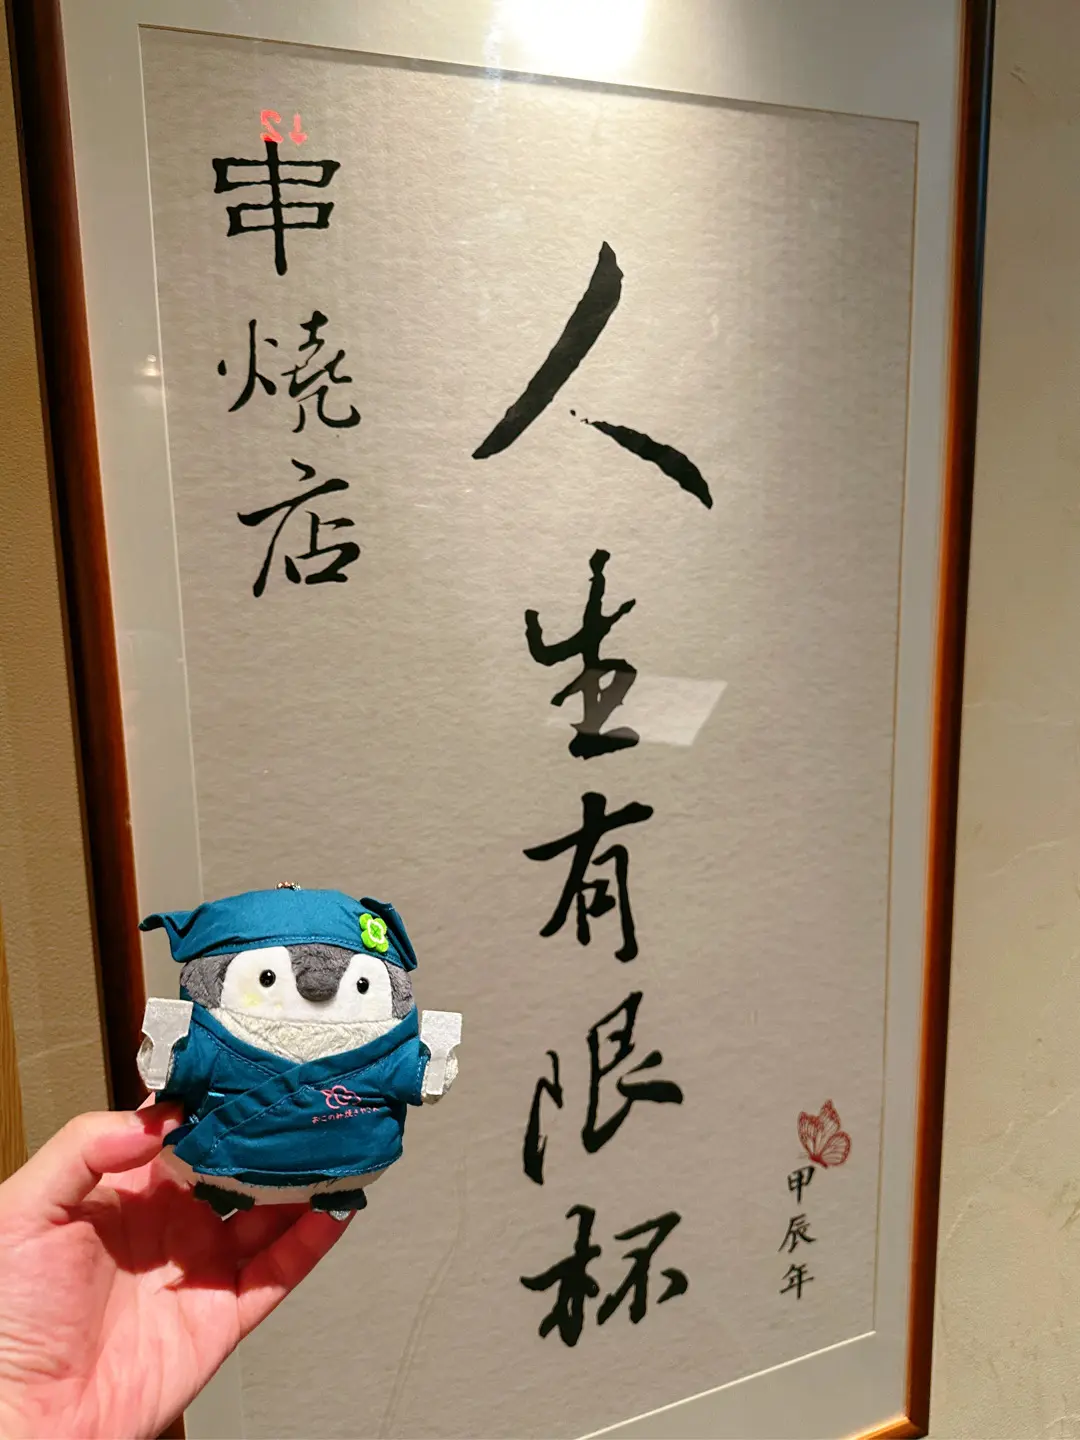 人生有限杯
串燒店
甲辰年
おこのみ焼きやさん